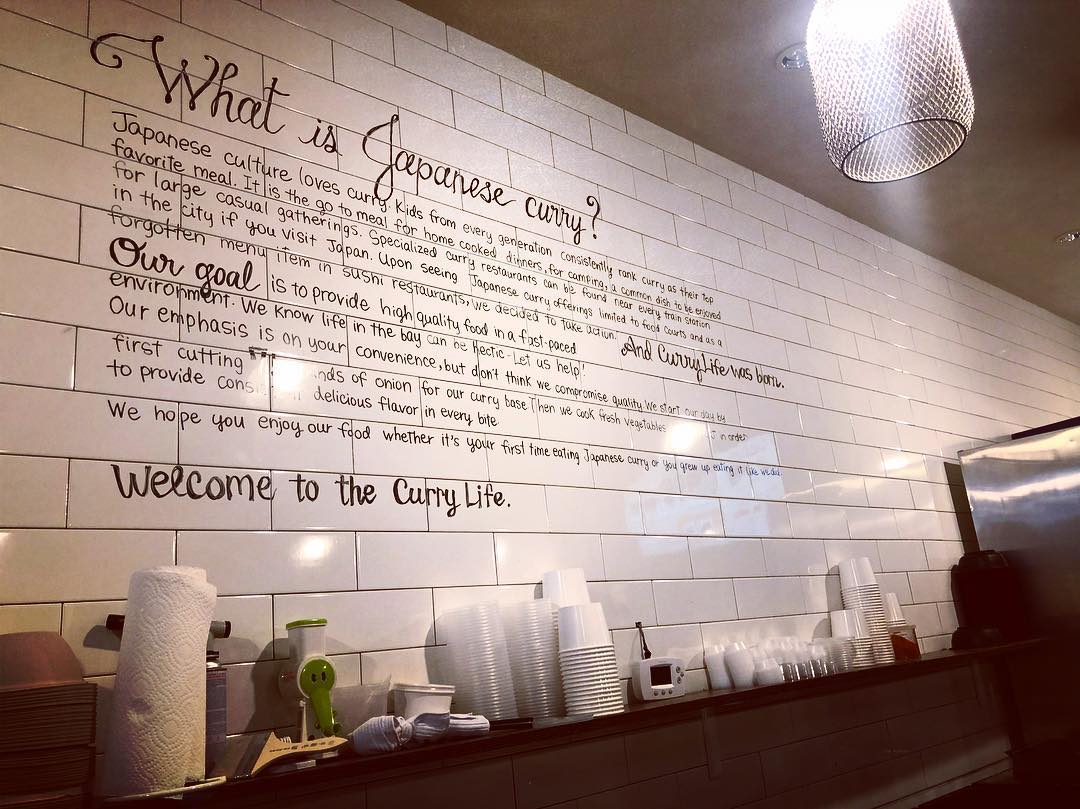 What is Japanese curry?
Japanese culture loves curry. Kids from every generation consistently rank curry as their top
favorite meal. It is the go to meal for home cooked dinners, for camping, a common dish to be enjoyed
for large casual gatherings. Specialized curry restaurants can be found near every train station
in the city if you visit Japan. Upon seeing Japanese curry offerings limited to food courts and as a
forgotten menu item in sushi restaurants, we decided to take action. And Curry Life was born.
Our goal is to provide high quality food in a fast-paced
environment. We know life in the bay can be hectic - Let us help!
Our emphasis is on your convenience, but don't think we compromise quality. We start our day by
first cutting of onion for our curry base. Then we cook fresh vegetables in order
to provide delicious flavor in every bite
We hope you enjoy our food whether it's your first time eating Japanese curry or you grew up eating it like we did.
Welcome to the Curry Life.